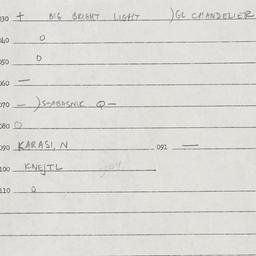 030 + BIG BRIGHT LIGHT )GL CHANDELIER
040 O
050 O
060 —
070 — )SGABASNIK Q—
080 O
090 KARASI, N 091 —
100 KNEJTL
110 O